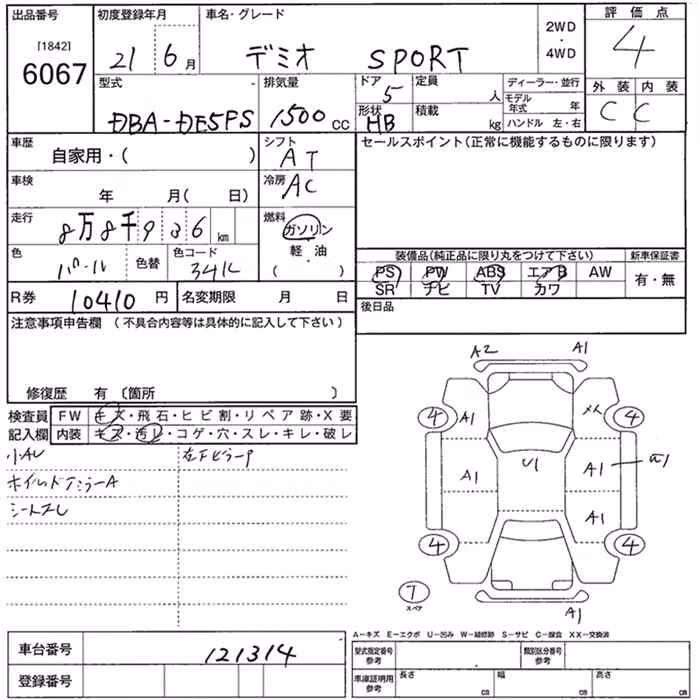 出品番号 初度登録年月 車名・グレード 2WD・4WD 評価点
[1842]
6067 21 6月 デミオ SPORT 4
型式 排気量 ドア 5 定員 人 ディーラー・並行 外装 内装
DBA-DE5FS 1500 cc 形状 HB 積載 kg モデル年式 年 C C
ハンドル 左・右
車歴 自家用・( ) シフト AT セールスポイント(正常に機能するものに限ります)
車検 年 月( 日) 冷房 AC
走行 8万8千936 km 燃料 ガソリン
軽・油
( )
色 パール 色替 色コード 34K
装備品(純正品に限り丸をつけて下さい) 新車保証書
PS PW ABS エアB AW 有・無
SR ナビ TV カワ
R券 10410 円 名変期限 月 日 後日品
注意事項申告欄 (不具合内容等は具体的に記入して下さい)
修復歴 有 (箇所 )
検査員 FW キズ・飛石・ヒビ割・リペア跡・X要
記入欄 内装 キズ・汚レ・コゲ・穴・スレ・キレ・破レ
小AU
シートスレ
A2 A1
4 A1 4
A1 U1 A1
A1
4 4
T
スペア A1
A-キズ E-エクボ U-凹み W-補修跡 S-サビ C-腐食 XX-交換済
車台番号 121314 型式指定番号 参考 類別区分番号 参考
登録番号 車庫証明用 参考 長さ cm 幅 cm 高さ cm